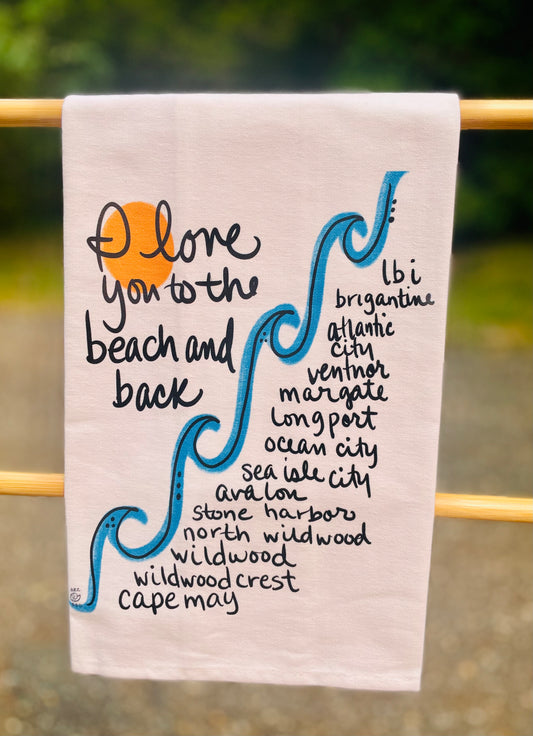 I love
you to the
beach and
back
lbi
brigantine
atlantic
city
ventnor
margate
longport
ocean city
sea isle city
avalon
stone harbor
north wildwood
wildwood
wildwood crest
cape may